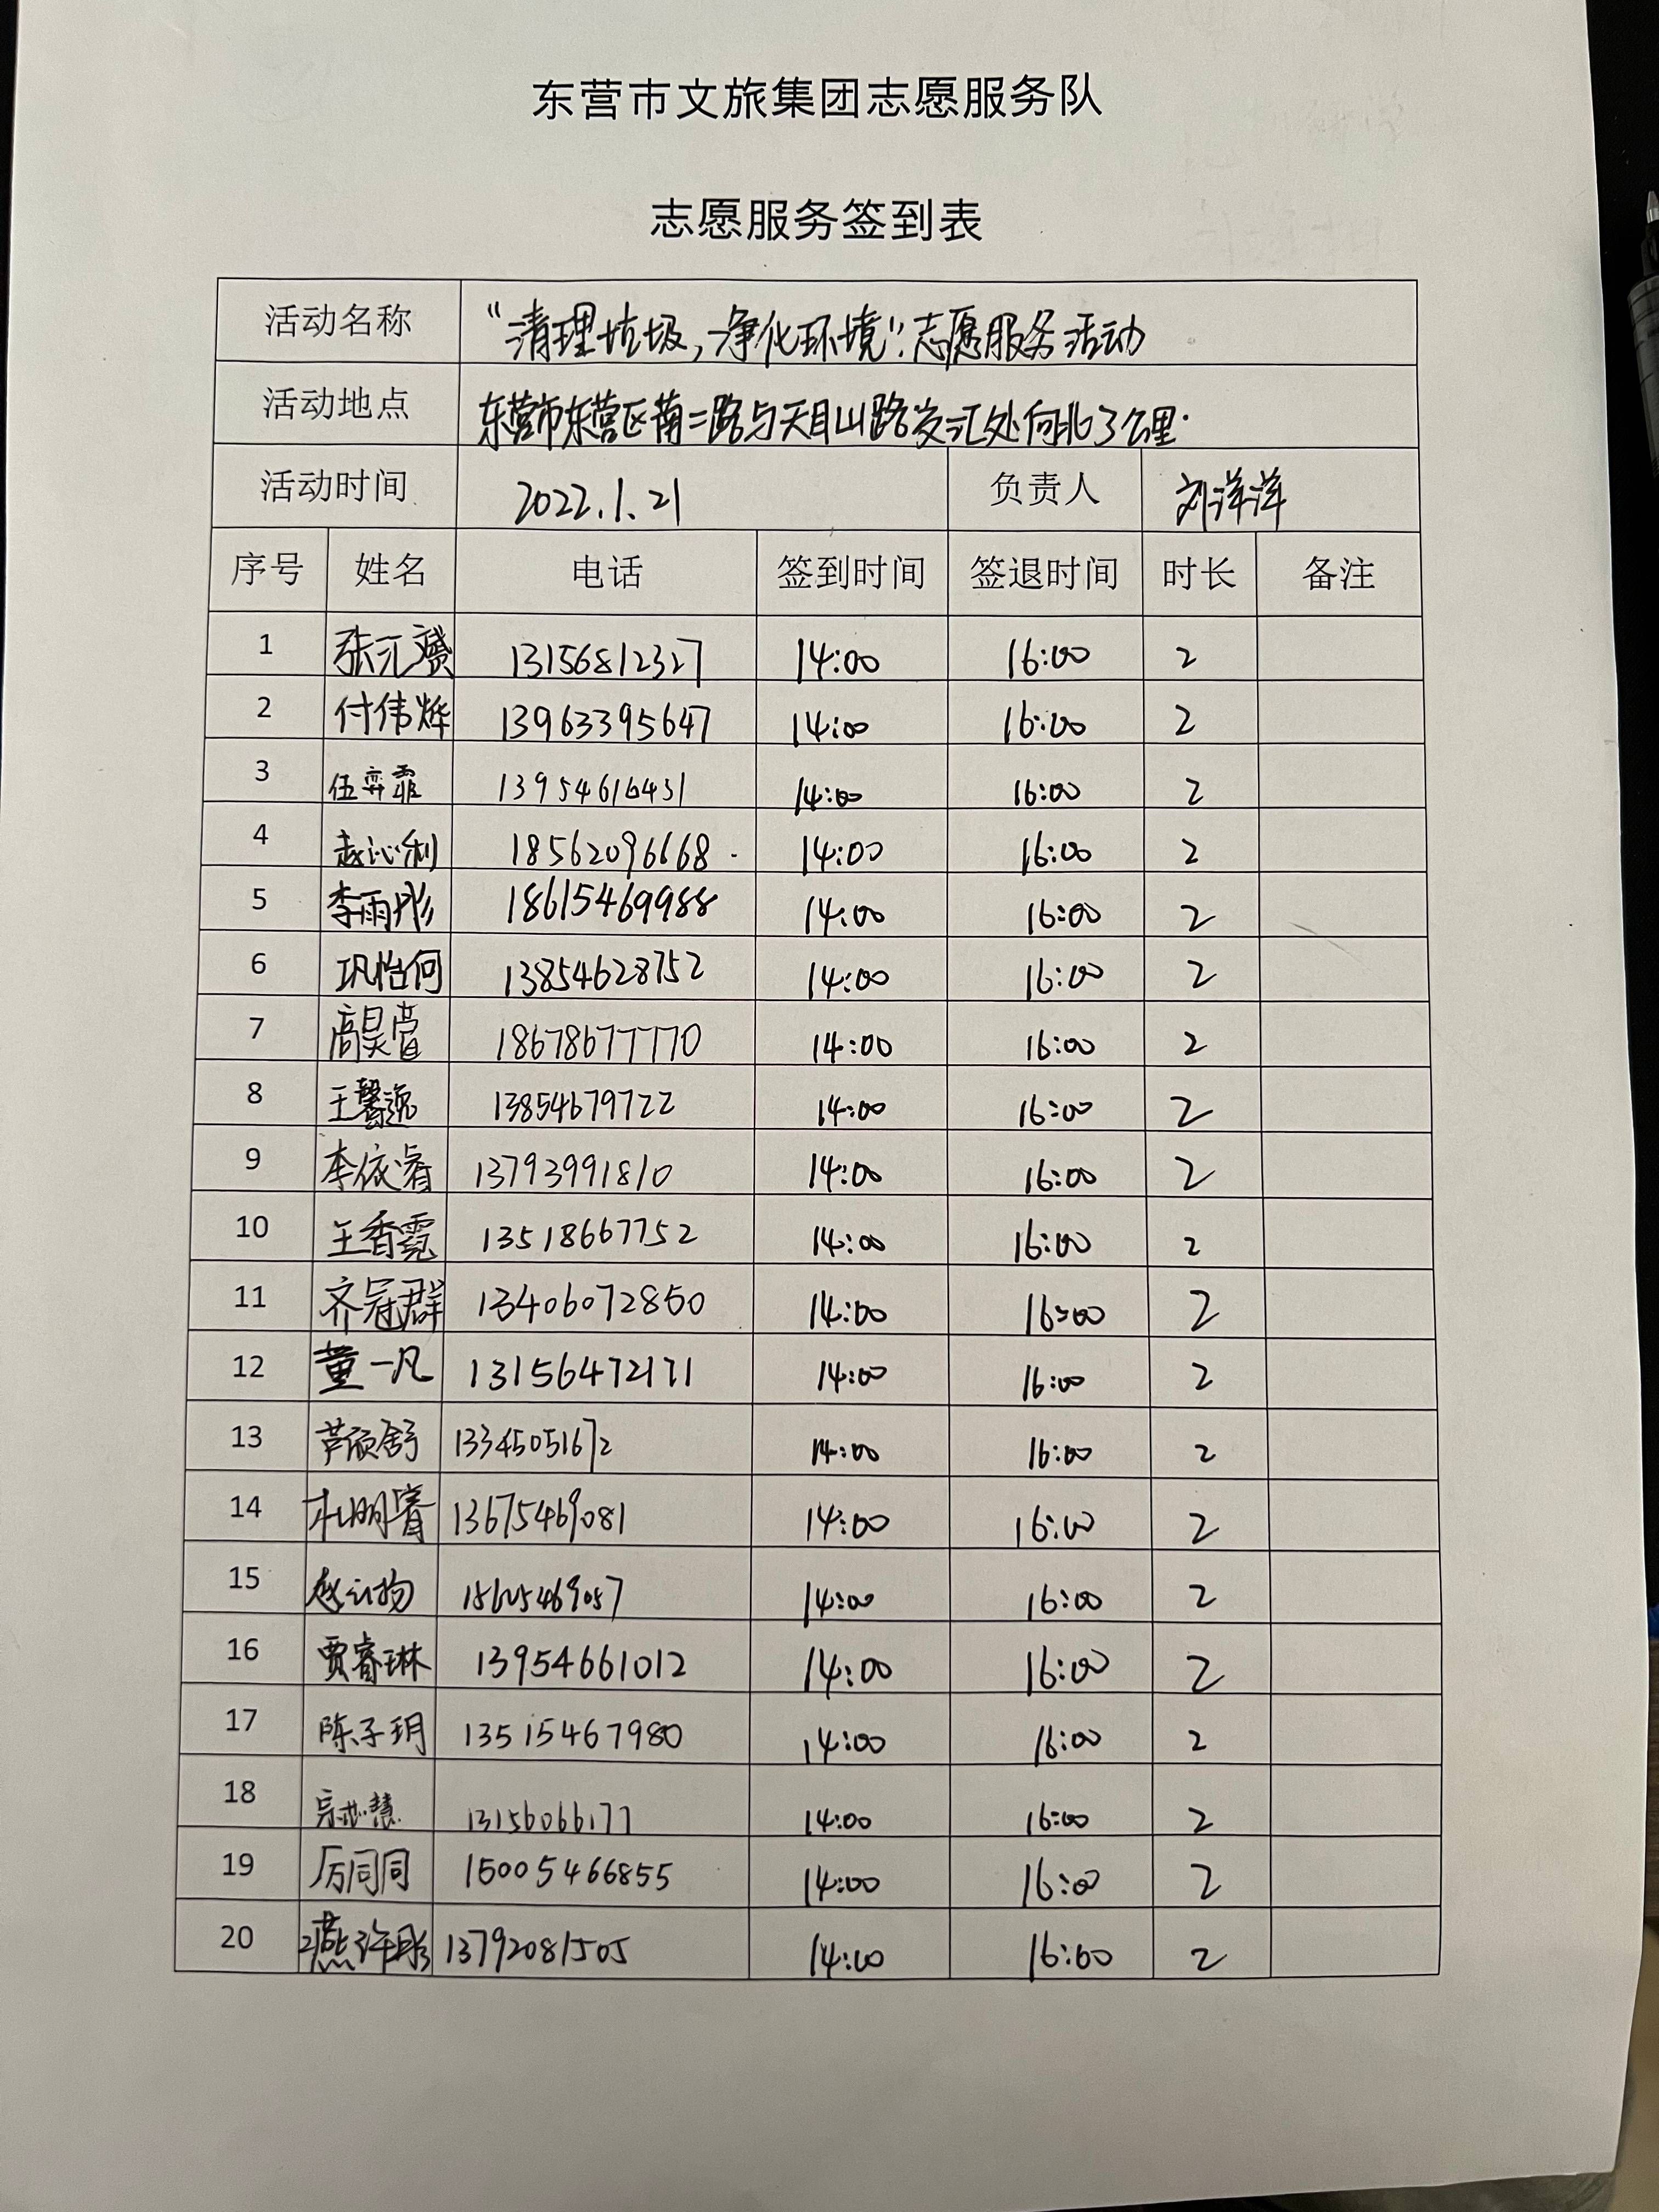 东营市文旅集团志愿服务队
志愿服务签到表
活动名称 “清理垃圾,净化环境”志愿服务活动
活动地点 东营市东营区南二路与天目山路交汇处向北3公里.
活动时间 2022.1.21 负责人 刘洋洋
序号 姓名 电话 签到时间 签退时间 时长 备注
1 张元赟 13156812327 14:00 16:00 2
2 付伟烨 13963395647 14:00 16:00 2
3 伍弈霏 13954616431 14:00 16:00 2
4 赵沁利 18562096668 14:00 16:00 2
5 李雨彤 18615469988 14:00 16:00 2
6 巩怡何 13854628752 14:00 16:00 2
7 高昊萱 18678677770 14:00 16:00 2
8 王馨逸 13854679722 14:00 16:00 2
9 李依睿 13793991810 14:00 16:00 2
10 王香霓 13518667752 14:00 16:00 2
11 齐冠群 13406072850 14:00 16:00 2
12 董一凡 13156472171 14:00 16:00 2
13 芦颀舒 13345051672 14:00 16:00 2
14 杜明睿 13675469081 14:00 16:00 2
15 14:00 16:00 2
16 贾睿琳 13954661012 14:00 16:00 2
17 陈子玥 13515467980 14:00 16:00 2
18 13156066177 14:00 16:00 2
19 厉同同 15005466855 14:00 16:00 2
20 燕许彤 13792081505 14:00 16:00 2